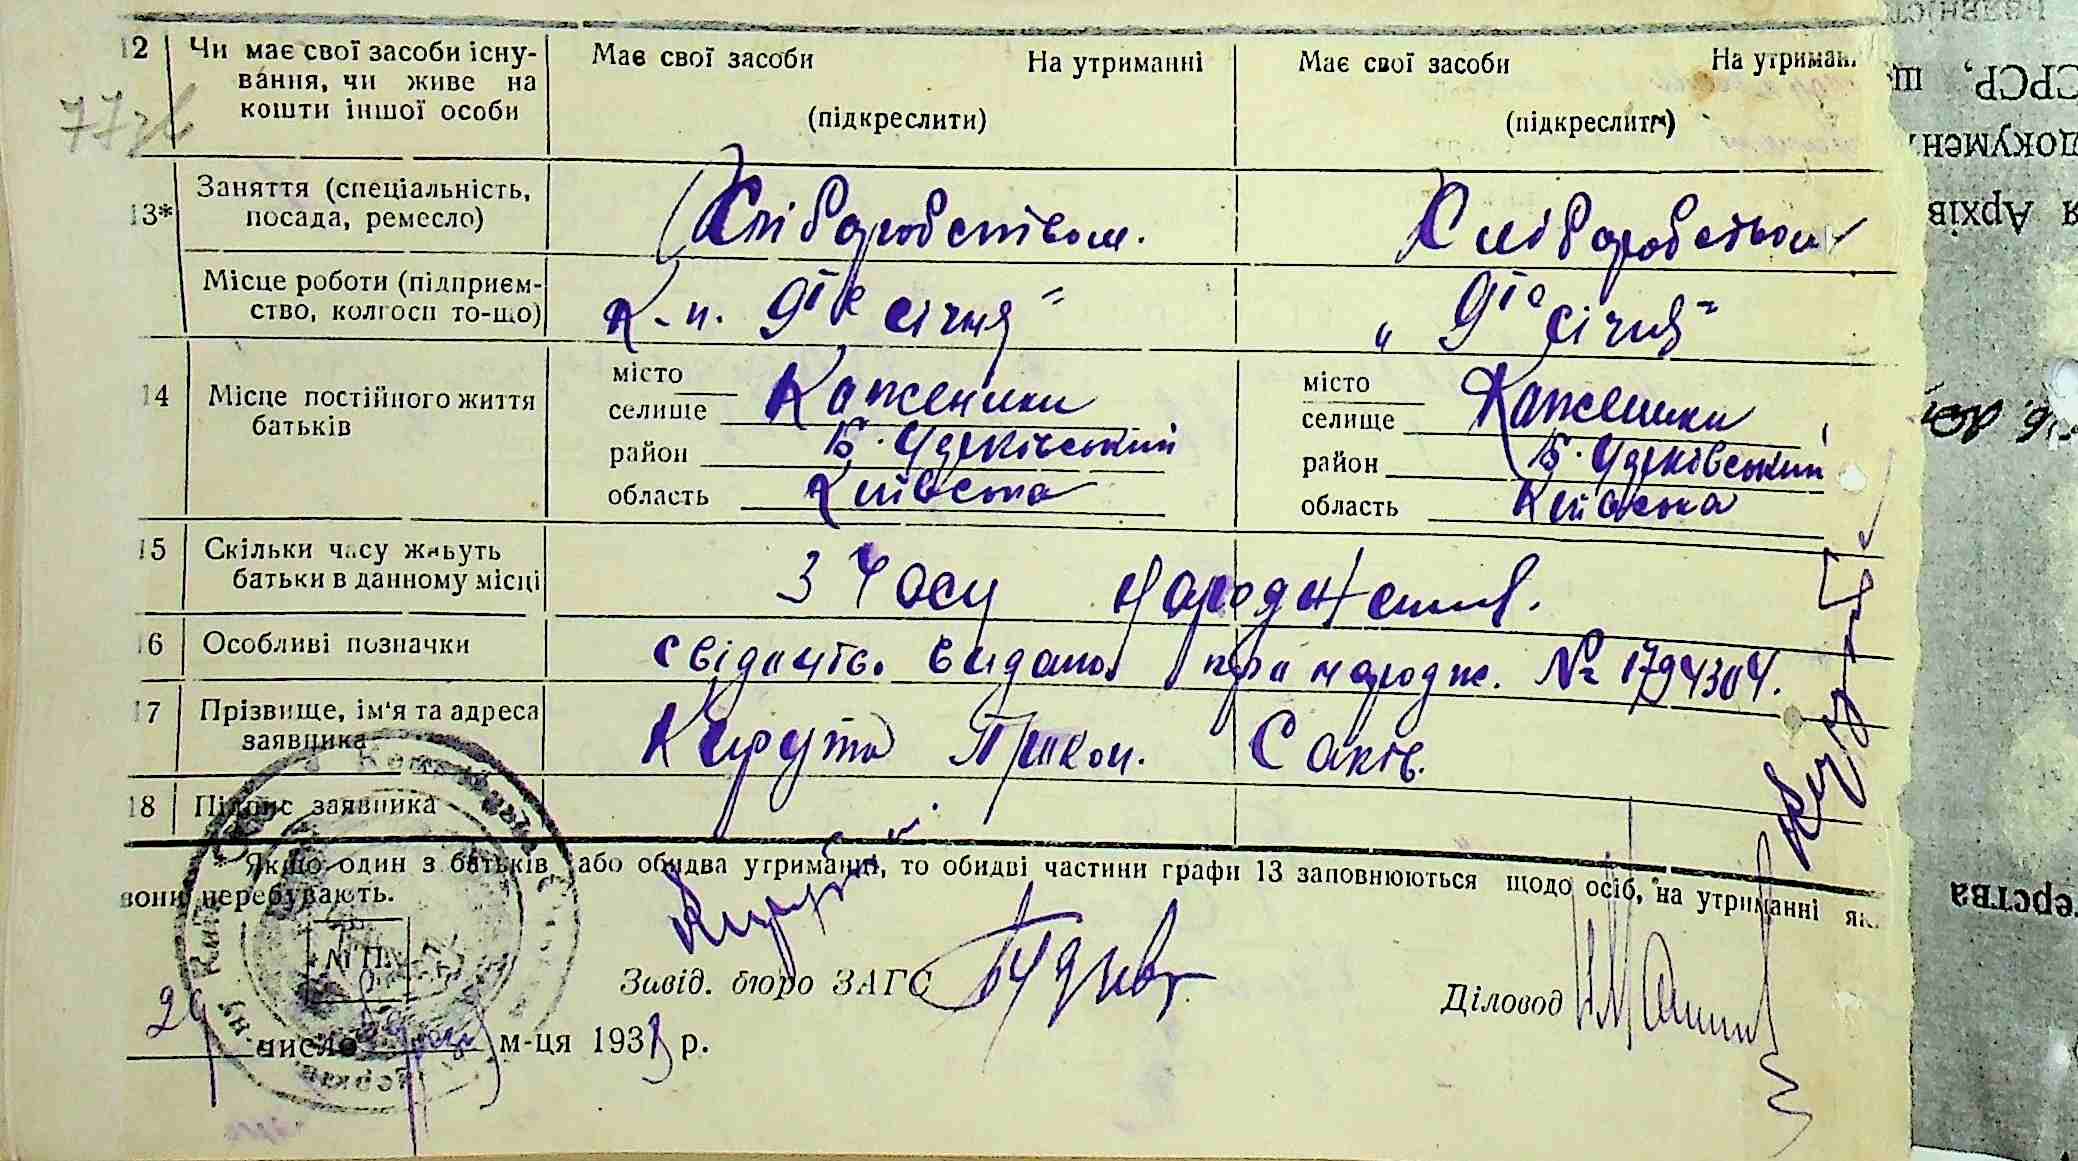 12 Чи має свої засоби існу- Має свої засоби На утриманні Має свої засоби На утриман
вання, чи живе на
кошти іншої особи (підкреслити) (підкреслити)
77
13* Заняття (спеціальність, Хліборобством. Хліборобством
посада, ремесло)
Місце роботи (підприєм- К-п. 9те січня" „9те січня"
ство, колгосп то-що)
14 Місце постійного життя місто місто
батьків селище Каженики селище Каженики
район Б. Церківський район Б. Церківський
область Київська область Київська
15 Скільки часу живуть З часу народження.
батьки в данному місці
16 Особливі позначки свідоцтво видано при народж. № 1794304.
17 Прізвище, ім'я та адреса Кирута
заявника
18 Підпис заявника
Якщо один з батьків або обидва утриманні, то обидві частини графи 13 заповнюються щодо осіб, на утриманні як
вони перебувають.
М. П.
Завід. бюро ЗАГС
Діловод
29 число м-ця 1933 р.
СРСР, щ
докумен
я Архів
ерства